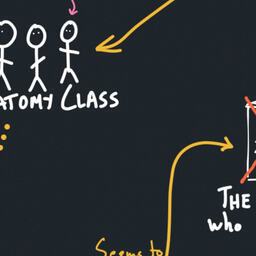 ATOMY CLASS
THE
who
Seems to